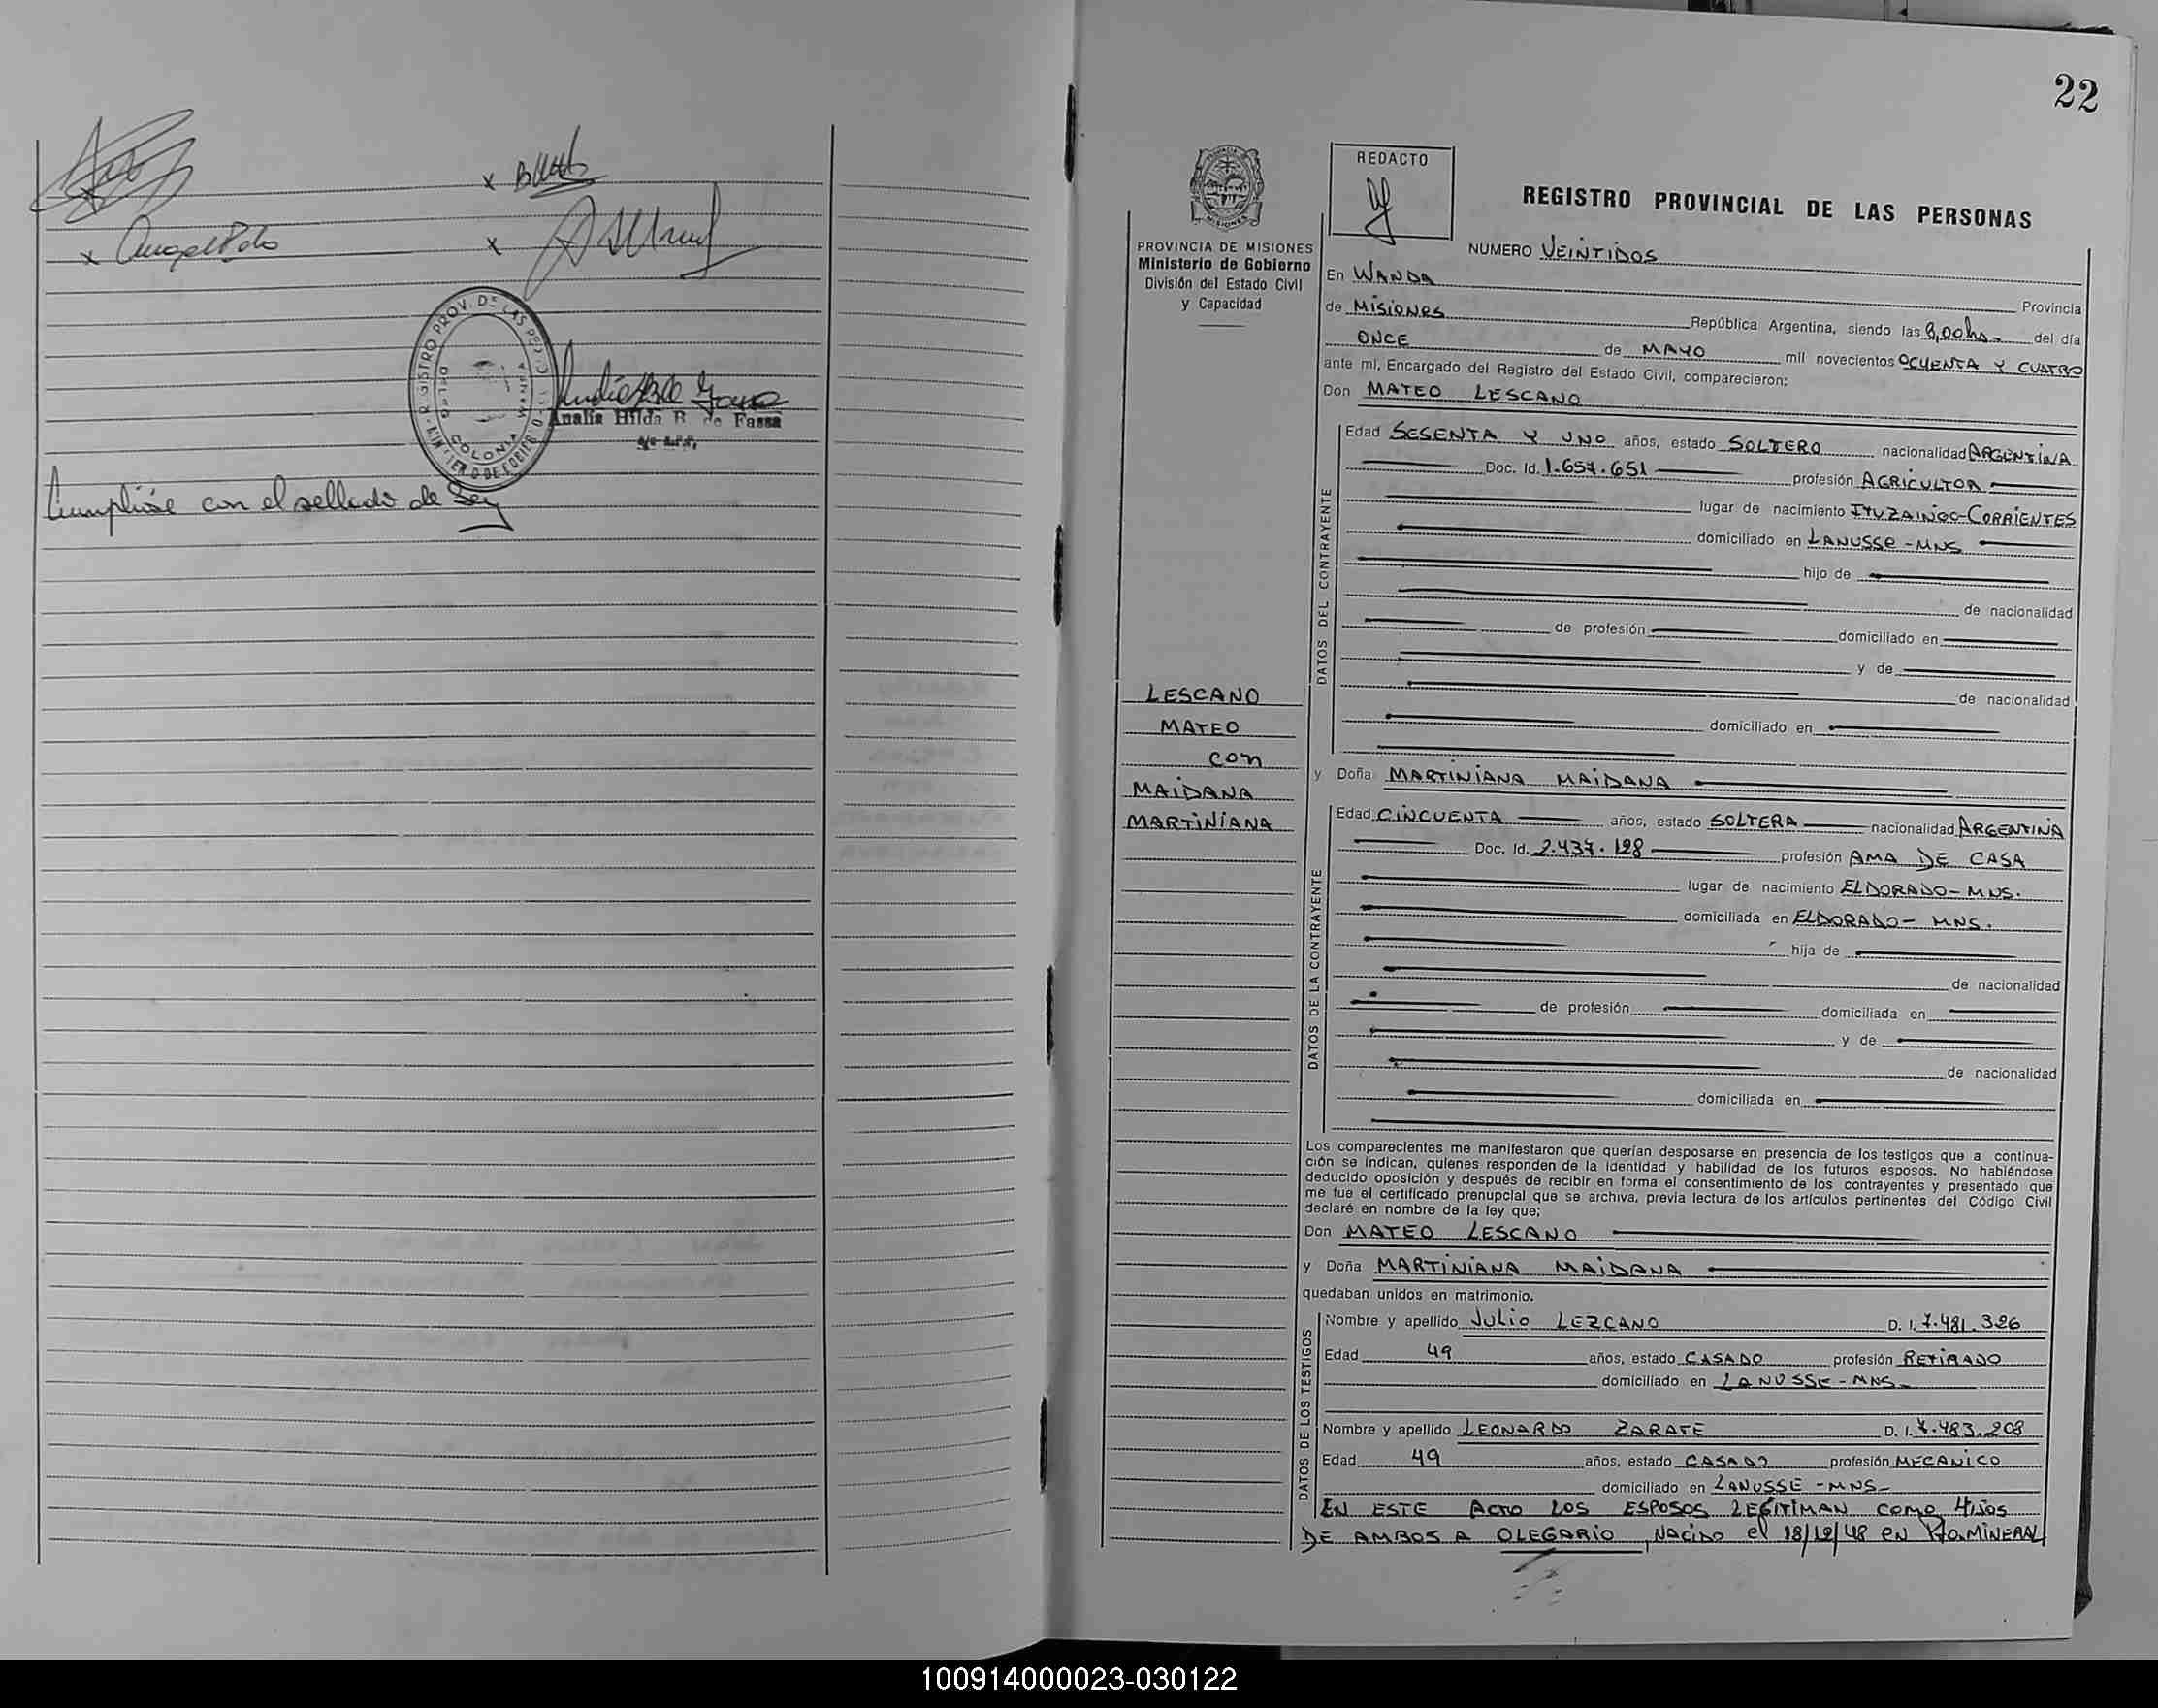 x
x
x
REGISTRO PROV. DE LAS PER
COLONIA WANDA
Analia Hilda B. de Fassa
Cumplióse con el sellado de Ley
22
REDACTO
REGISTRO PROVINCIAL DE LAS PERSONAS
PROVINCIA DE MISIONES
Ministerio de Gobierno
División del Estado Civil
y Capacidad
NUMERO VEINTIDOS
En WANDA Provincia
de MISIONES República Argentina, siendo las 8,00hs del día
ONCE de MAYO mil novecientos OCHENTA Y CUATRO
ante mí, Encargado del Registro del Estado Civil, comparecieron:
Don MATEO LESCANO
DATOS DEL CONTRAYENTE
Edad SESENTA Y UNO años, estado SOLTERO nacionalidad ARGENTINA
Doc. Id. 1.657.651 profesión AGRICULTOR
lugar de nacimiento ITUZAINGO-CORRIENTES
domiciliado en LANUSSE-MNS
hijo de
de nacionalidad
de profesión domiciliado en
y de
de nacionalidad
domiciliado en
LESCANO
MATEO
con
MAIDANA
MARTINIANA
y Doña MARTINIANA MAIDANA
DATOS DE LA CONTRAYENTE
Edad CINCUENTA años, estado SOLTERA nacionalidad ARGENTINA
Doc. Id. 2.437.128 profesión AMA DE CASA
lugar de nacimiento ELDORADO-MNS.
domiciliada en ELDORADO-MNS.
hija de
de nacionalidad
de profesión domiciliada en
y de
de nacionalidad
domiciliada en
Los comparecientes me manifestaron que querían desposarse en presencia de los testigos que a continua-
ción se indican, quienes responden de la identidad y habilidad de los futuros esposos. No habiéndose
deducido oposición y después de recibir en forma el consentimiento de los contrayentes y presentado que
me fue el certificado prenupcial que se archiva, previa lectura de los artículos pertinentes del Código Civil
declaré en nombre de la ley que:
Don MATEO LESCANO
y Doña MARTINIANA MAIDANA
quedaban unidos en matrimonio.
DATOS DE LOS TESTIGOS
Nombre y apellido JULIO LEZCANO D. I. 7.481.326
Edad 49 años, estado CASADO profesión RETIRADO
domiciliado en LANUSSE-MNS-
Nombre y apellido LEONARDO ZARATE D. I. 7.483.208
Edad 49 años, estado CASADO profesión MECANICO
domiciliado en LANUSSE-MNS-
EN ESTE ACTO LOS ESPOSOS LEGITIMAN COMO HIJOS
DE AMBOS A OLEGARIO, NACIDO el 18/12/48 EN Pto MINERAL
100914000023-030122